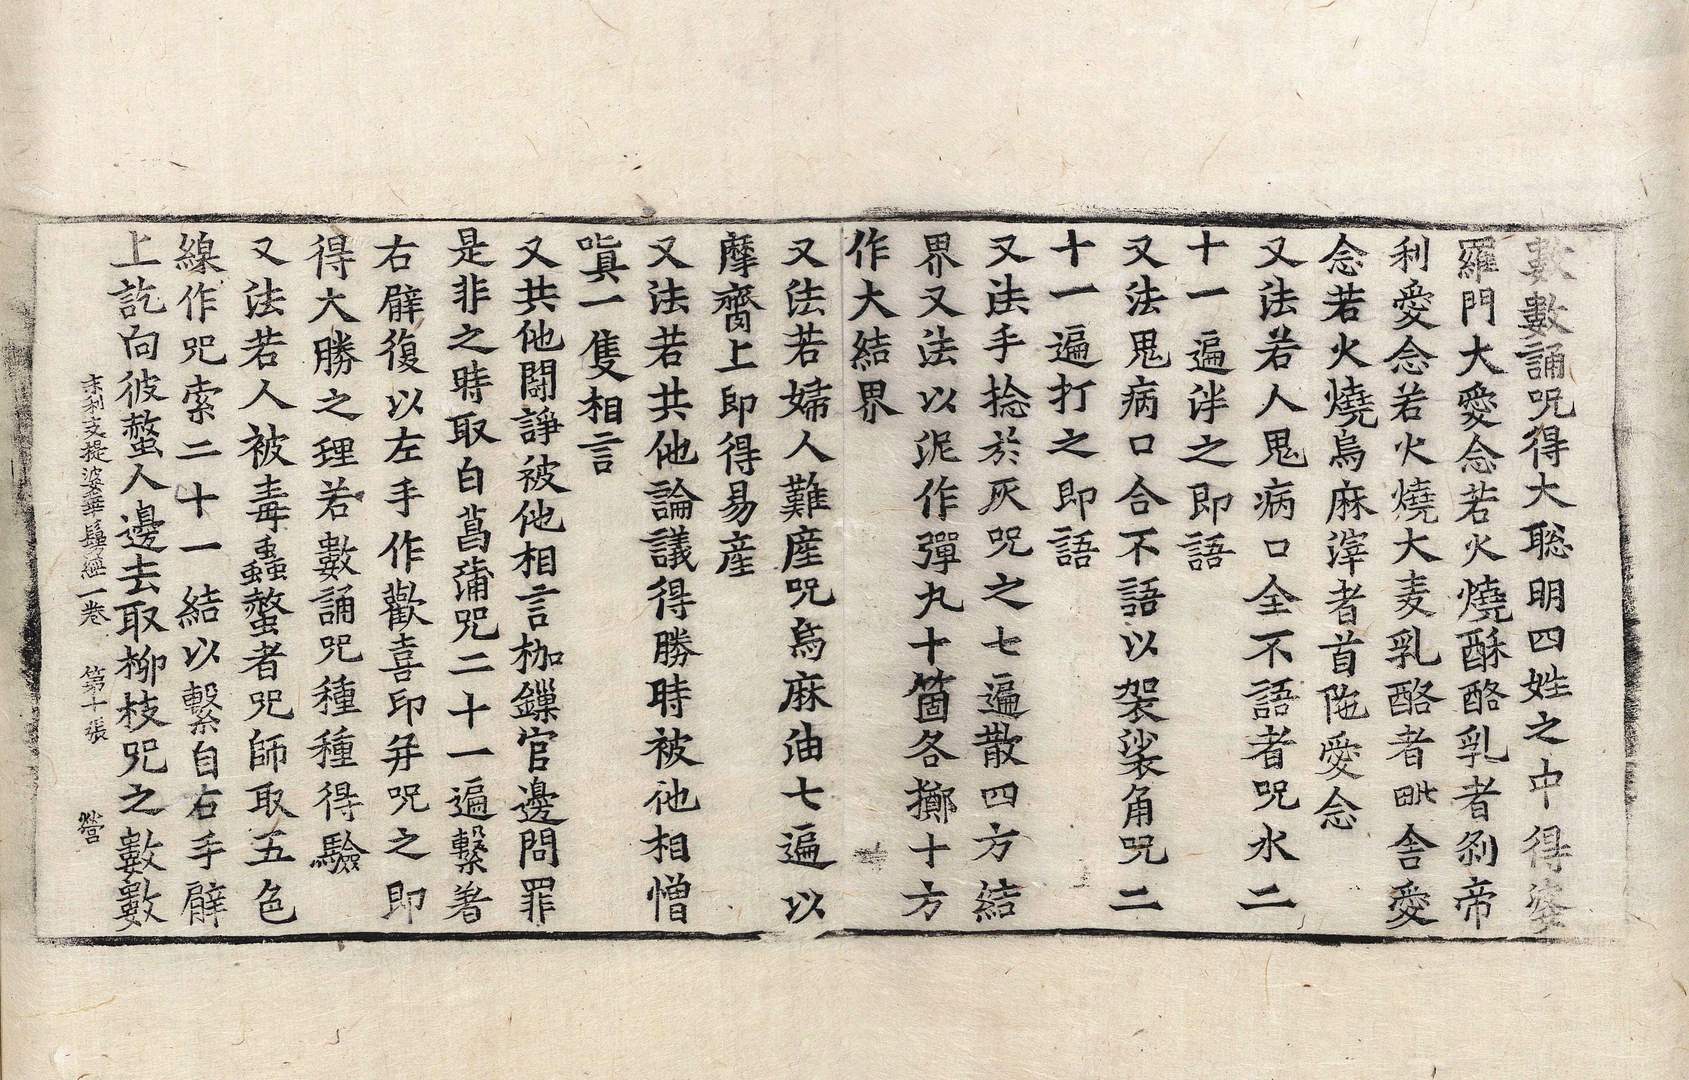 數數誦呪得大聡明四姓之中得婆
羅門大愛念若火燒酥酪乳者刹帝
利愛念若火燒大麦乳酪者毗舍愛
念若火燒烏麻滓者首陁愛念
又法若人鬼病口全不語者呪水二
十一遍泮之即語
又法鬼病口合不語以袈裟角呪二
十一遍打之即語
又法手捻於灰呪之七遍散四方結
界又法以泥作彈丸十箇各擲十方
作大結界
又法若婦人難産呪烏麻油七遍以
摩齎上即得易産
又法若共他論議得勝時被他相憎
嗔一隻相言
又共他鬪諍被他相言枷鏁官邊問罪
是非之時取白菖蒲呪二十一遍繫著
右臂復以左手作歡喜印并呪之即
得大勝之理若數誦呪種種得驗
又法若人被毒蟲螫者呪師取五色
線作呪索二十一結以繫自右手臂
上訖向彼螫人邊去取柳枝呪之數數
末利支提婆華鬘經一卷 第十張 營